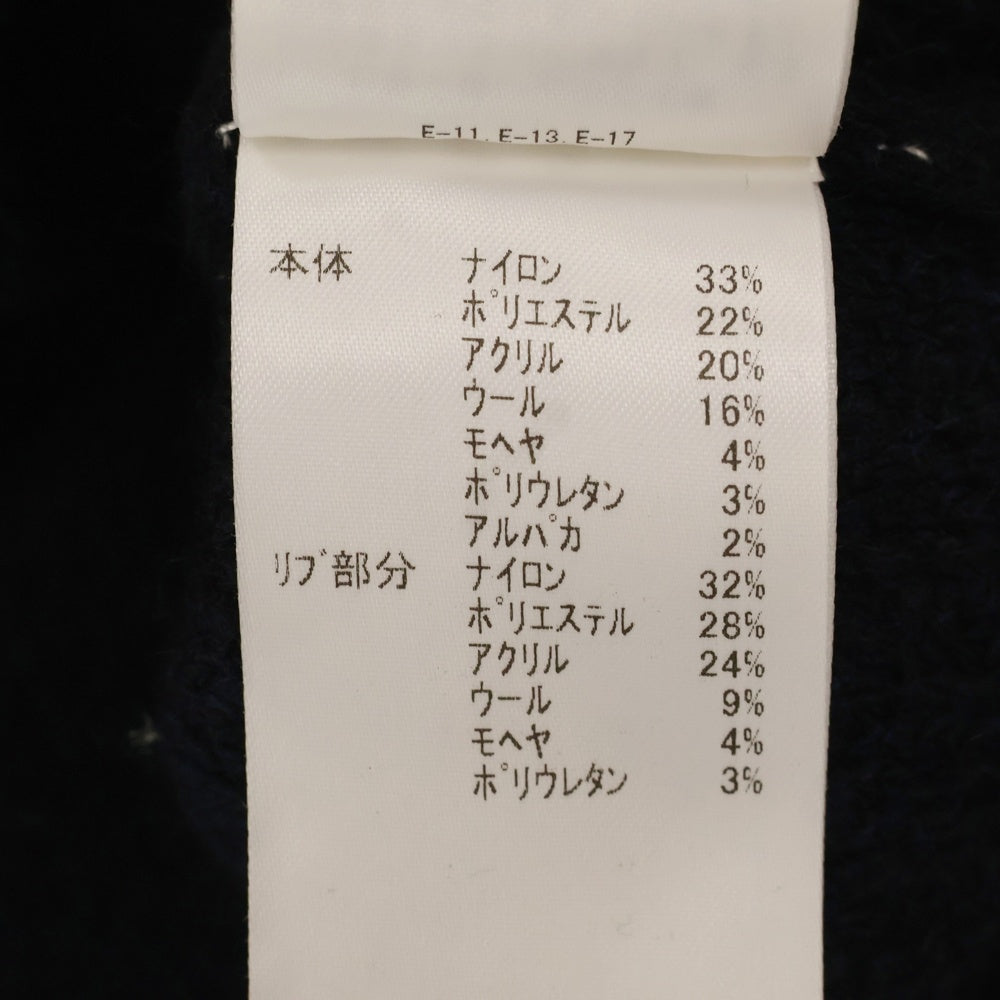 E-11, E-13, E-17
本体 ナイロン 33%
ポリエステル 22%
アクリル 20%
ウール 16%
モヘヤ 4%
ポリウレタン 3%
アルパカ 2%
リブ部分 ナイロン 32%
ポリエステル 28%
アクリル 24%
ウール 9%
モヘヤ 4%
ポリウレタン 3%